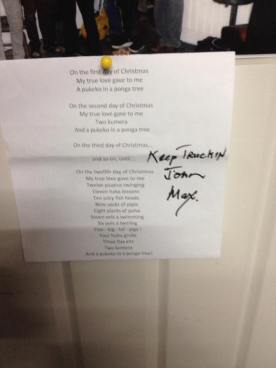 On the first day of Christmas
My true love gave to me
A pukeko in a ponga tree
On the second day of Christmas
My true love gave to me
Two kumera
And a pukeko in a ponga tree
On the third day of Christmas...
and so on, until...
Keep Truckin
John
Max.
On the twelfth day of Christmas
My true love gave to me
Twelve piupius swinging
Eleven haka lessons
Ten juicy fish heads
Nine sacks of pipis
Eight plants of puha
Seven eels a swimming
Six pois a twirling
Five - big - fat - pigs!
Four huhu grubs
Three flax kits
Two kumera
And a pukeko in a ponga tree!